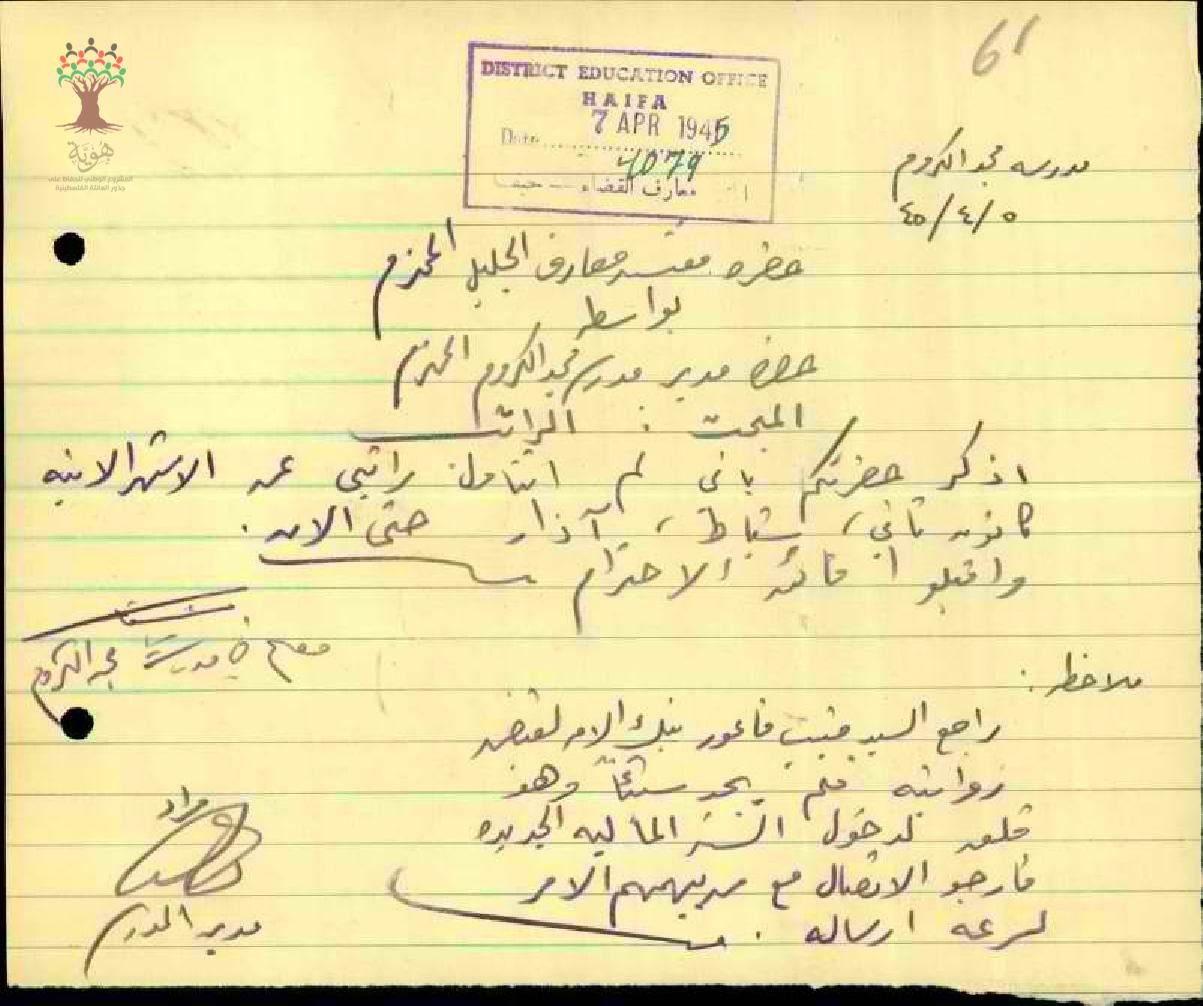 61
هوية
المشروع الوطني للحفاظ على
جذور العائلة الفلسطينية
DISTRICT EDUCATION OFFICE
HAIFA
7 APR 1945
Date
4079
معارف القضاء — حيفا
مدرسه مجد الكروم
٤٥/٤/٥
حضرة مفتش معارف الجليل المحترم
بواسطه
حضرة مدير مدرسة مجد الكروم المحترم
المبحث : الراتب
اذكر حضرتكم باني لم اتناول راتبي عن الاشهر الاتيه
كانون ثاني، شباط، آذار حتى الان.
واقبلوا فائق الاحترام
معلم في مدرسة مجد الكروم
ملاحظه :
راجع السيد منيب فاعور بنك الامه لقبض
رواتبه فلم يجد شيئاً وهو
قلق لدخول السنه الماليه الجديده
فارجو الاتصال مع من يهمهم الامر
لسرعه ارساله .
مدير المدرسة